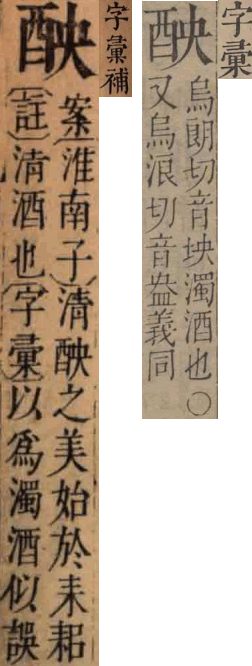 字彙
醠
烏朗切音坱濁酒也○
又烏浪切音盎義同
字彙補
醠
案淮南子清醠之美始於耒耜
註清酒也字彙以為濁酒似誤